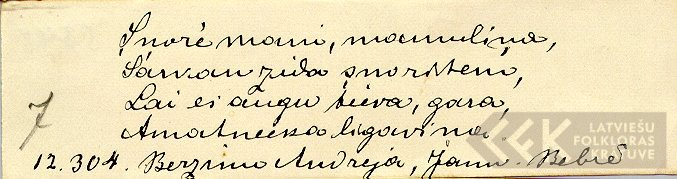 Šņorē mani, mamuliņa,
Sarkan zīda šņorītēm,
Lai es augu tieva, gara,
Amatnieka līgaviņa.
7
12.304. Berziņu Andrejs, Jaun-Bebrē
LATVIEŠU
FOLKLORAS
KRĀTUVE